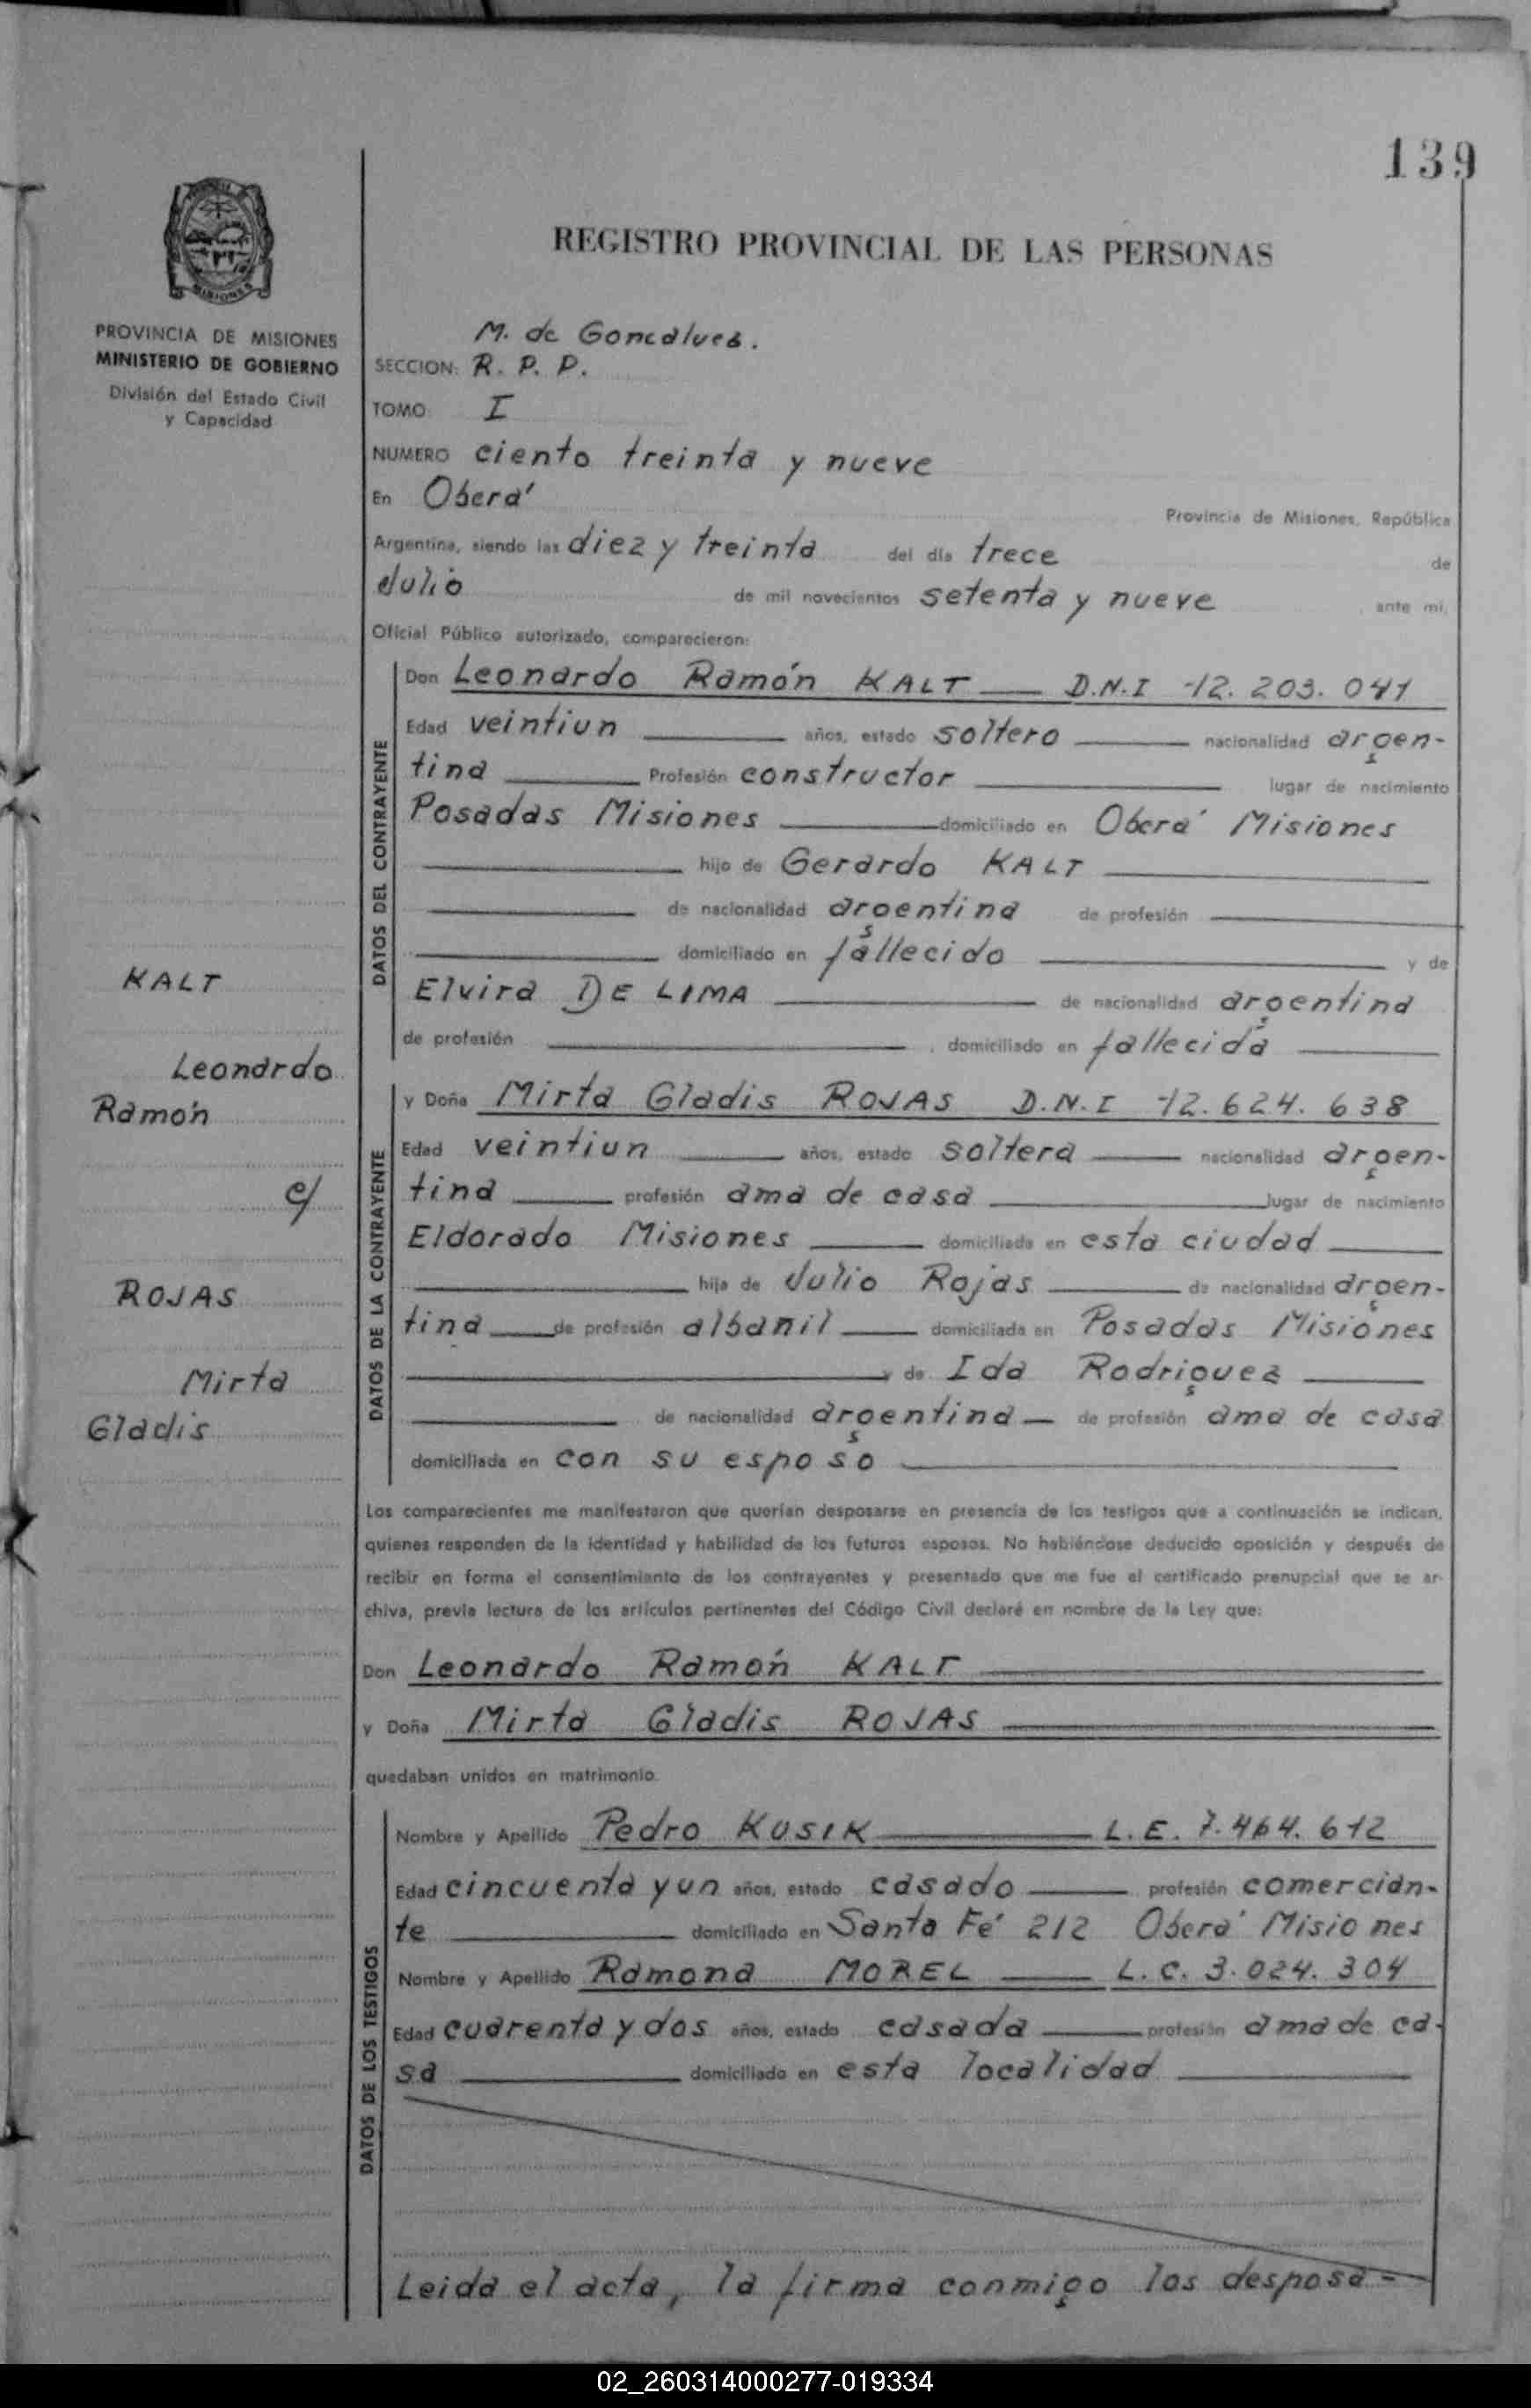 139
REGISTRO PROVINCIAL DE LAS PERSONAS
MISIONES
PROVINCIA DE MISIONES
MINISTERIO DE GOBIERNO
División del Estado Civil
y Capacidad
M. de Goncalves.
SECCION: R. P. P.
TOMO I
NUMERO ciento treinta y nueve
En Oberá
Provincia de Misiones, República
Argentina, siendo las diez y treinta del día trece de
Julio de mil novecientos setenta y nueve ante mi,
Oficial Público autorizado, comparecieron:
DATOS DEL CONTRAYENTE
Don Leonardo Ramón KALT D.N.I 12.203.041
Edad veintiun años, estado soltero nacionalidad argen-
tina Profesión constructor lugar de nacimiento
Posadas Misiones domiciliado en Oberá Misiones
hijo de Gerardo KALT
de nacionalidad argentina de profesión
domiciliado en fallecido y de
Elvira DE LIMA de nacionalidad argentina
de profesión , domiciliado en fallecida
KALT
Leonardo
Ramón
c/
ROJAS
Mirta
Gladis
DATOS DE LA CONTRAYENTE
y Doña Mirta Gladis ROJAS D.N.I 12.624.638
Edad veintiun años, estado soltera nacionalidad argen-
tina profesión ama de casa lugar de nacimiento
Eldorado Misiones domiciliada en esta ciudad
hija de Julio Rojas de nacionalidad argen-
tina de profesión albanil domiciliada en Posadas Misiones
y de Ida Rodriguez
de nacionalidad argentina de profesión ama de casa
domiciliada en con su esposo
Los comparecientes me manifestaron que querían desposarse en presencia de los testigos que a continuación se indican,
quienes responden de la identidad y habilidad de los futuros esposos. No habiéndose deducido oposición y después de
recibir en forma el consentimiento de los contrayentes y presentado que me fue el certificado prenupcial que se ar-
chiva, previa lectura de los artículos pertinentes del Código Civil declaré en nombre de la Ley que:
Don Leonardo Ramón KALT
y Doña Mirta Gladis ROJAS
quedaban unidos en matrimonio.
DATOS DE LOS TESTIGOS
Nombre y Apellido Pedro KUSIK L.E. 7.464.612
Edad cincuenta y un años, estado casado profesión comercian-
te domiciliado en Santa Fé 212 Oberá Misiones
Nombre y Apellido Ramona MOREL L.C. 3.024.304
Edad cuarenta y dos años, estado casada profesión ama de ca-
sa domiciliado en esta localidad
Leida el acta, la firma conmigo los desposa-
02_260314000277-019334